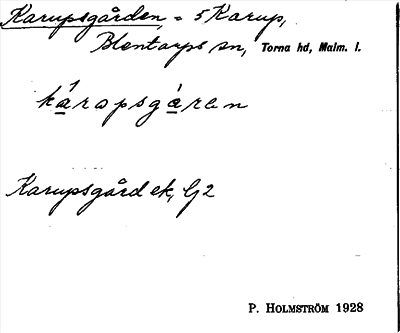 Karupsgården, = 5 Karup,
Blentarps sn, Torna hd, Malm. l.
ká̱rapsgà̱ren
Karupsgård ek, G2
P. HOLMSTRÖM 1928